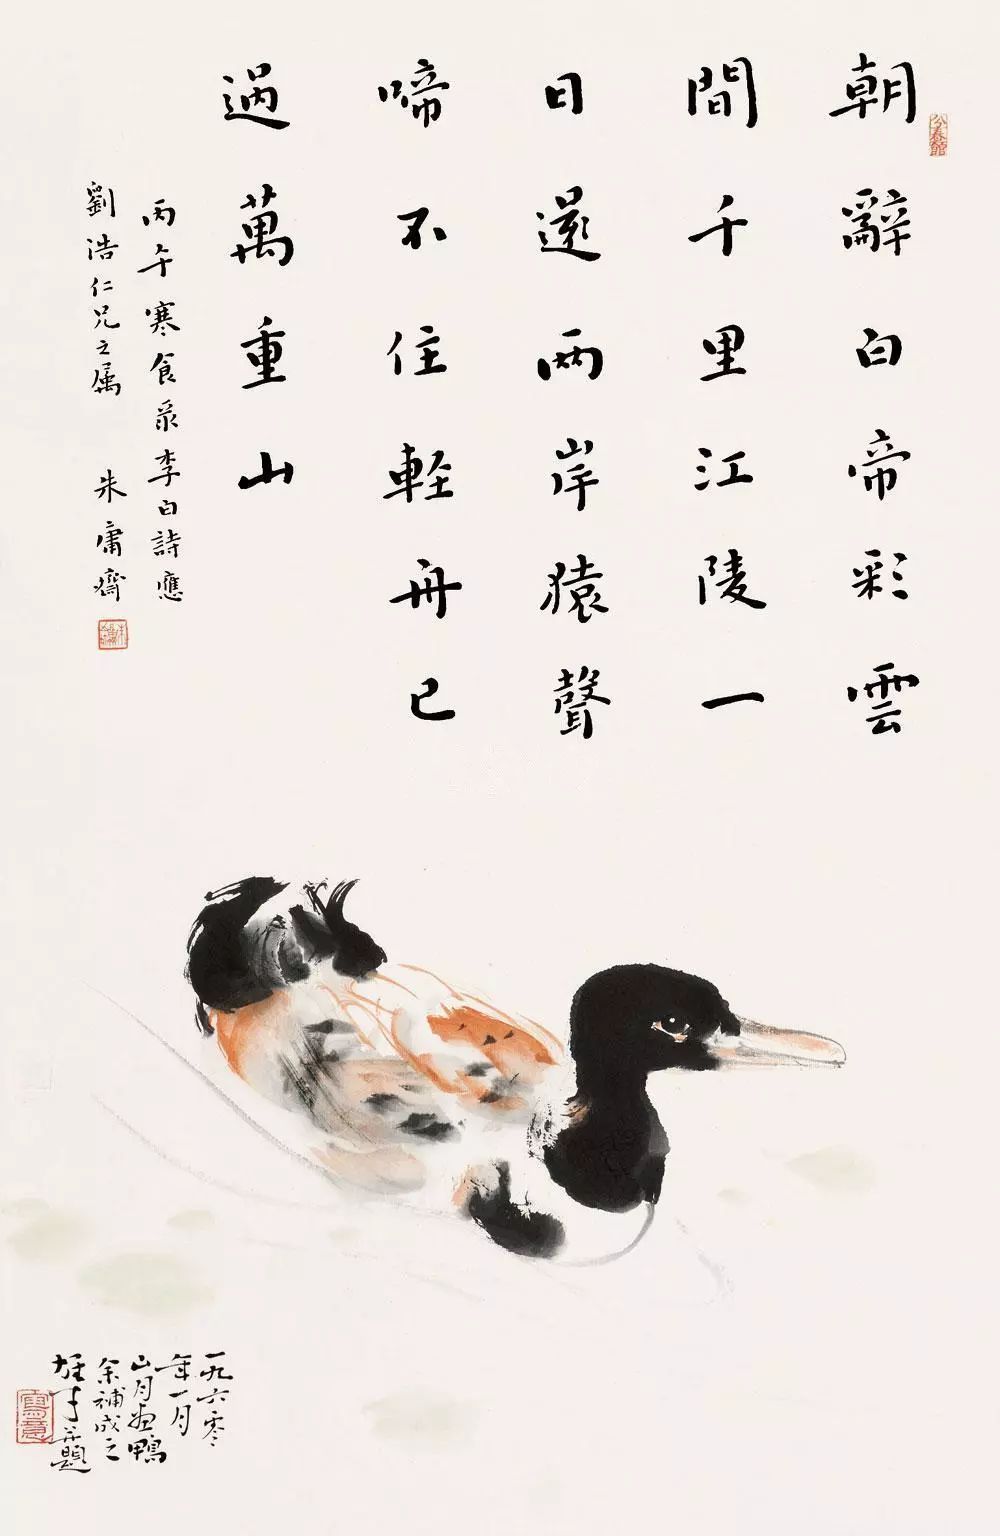 朝辭白帝彩雲
間千里江陵一
日還兩岸猿聲
啼不住輕舟已
過萬重山
丙午寒食录李白詩應
劉浩仁兄之属
朱庸齋
分春館
一九六零
年一月
山月画鴨
余補成之
雄才并題
寫意